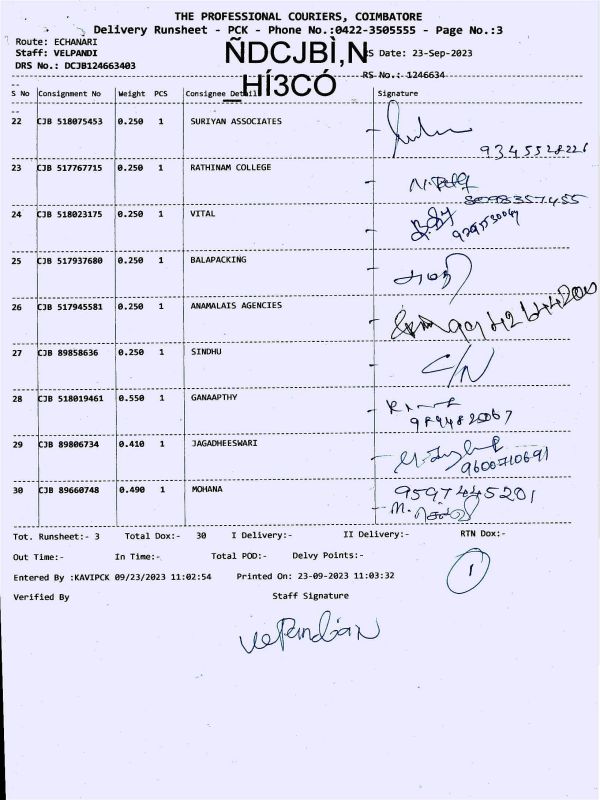 THE PROFESSIONAL COURIERS, COIMBATORE
Delivery Runsheet - PCK - Phone No.:0422-3505555 - Page No.:3
Route: ECHANARI
Staff: VELPANDI ÑDCJBÌ,N RS Date: 23-Sep-2023
DRS No.: DCJB124663403 _HÍ3CÓ RS No.: 1246634
S No Consignment No Weight PCS Consignee Detail Signature
22 CJB 518075453 0.250 1 SURIYAN ASSOCIATES
9345528226
23 CJB 517767715 0.250 1 RATHINAM COLLEGE
8098357455
24 CJB 518023175 0.250 1 VITAL
25 CJB 517937680 0.250 1 BALAPACKING
26 CJB 517945581 0.250 1 ANAMALAIS AGENCIES
27 CJB 89858636 0.250 1 SINDHU C/N
28 CJB 518019461 0.550 1 GANAAPTHY
29 CJB 89806734 0.410 1 JAGADHEESWARI
9600710691
30 CJB 89660748 0.490 1 MOHANA 9597445201
Tot. Runsheet:- 3 Total Dox:- 30 I Delivery:- II Delivery:- RTN Dox:-
Out Time:- In Time:- Total POD:- Delvy Points:-
Entered By :KAVIPCK 09/23/2023 11:02:54 Printed On: 23-09-2023 11:03:32 1
Verified By Staff Signature
Velpandian